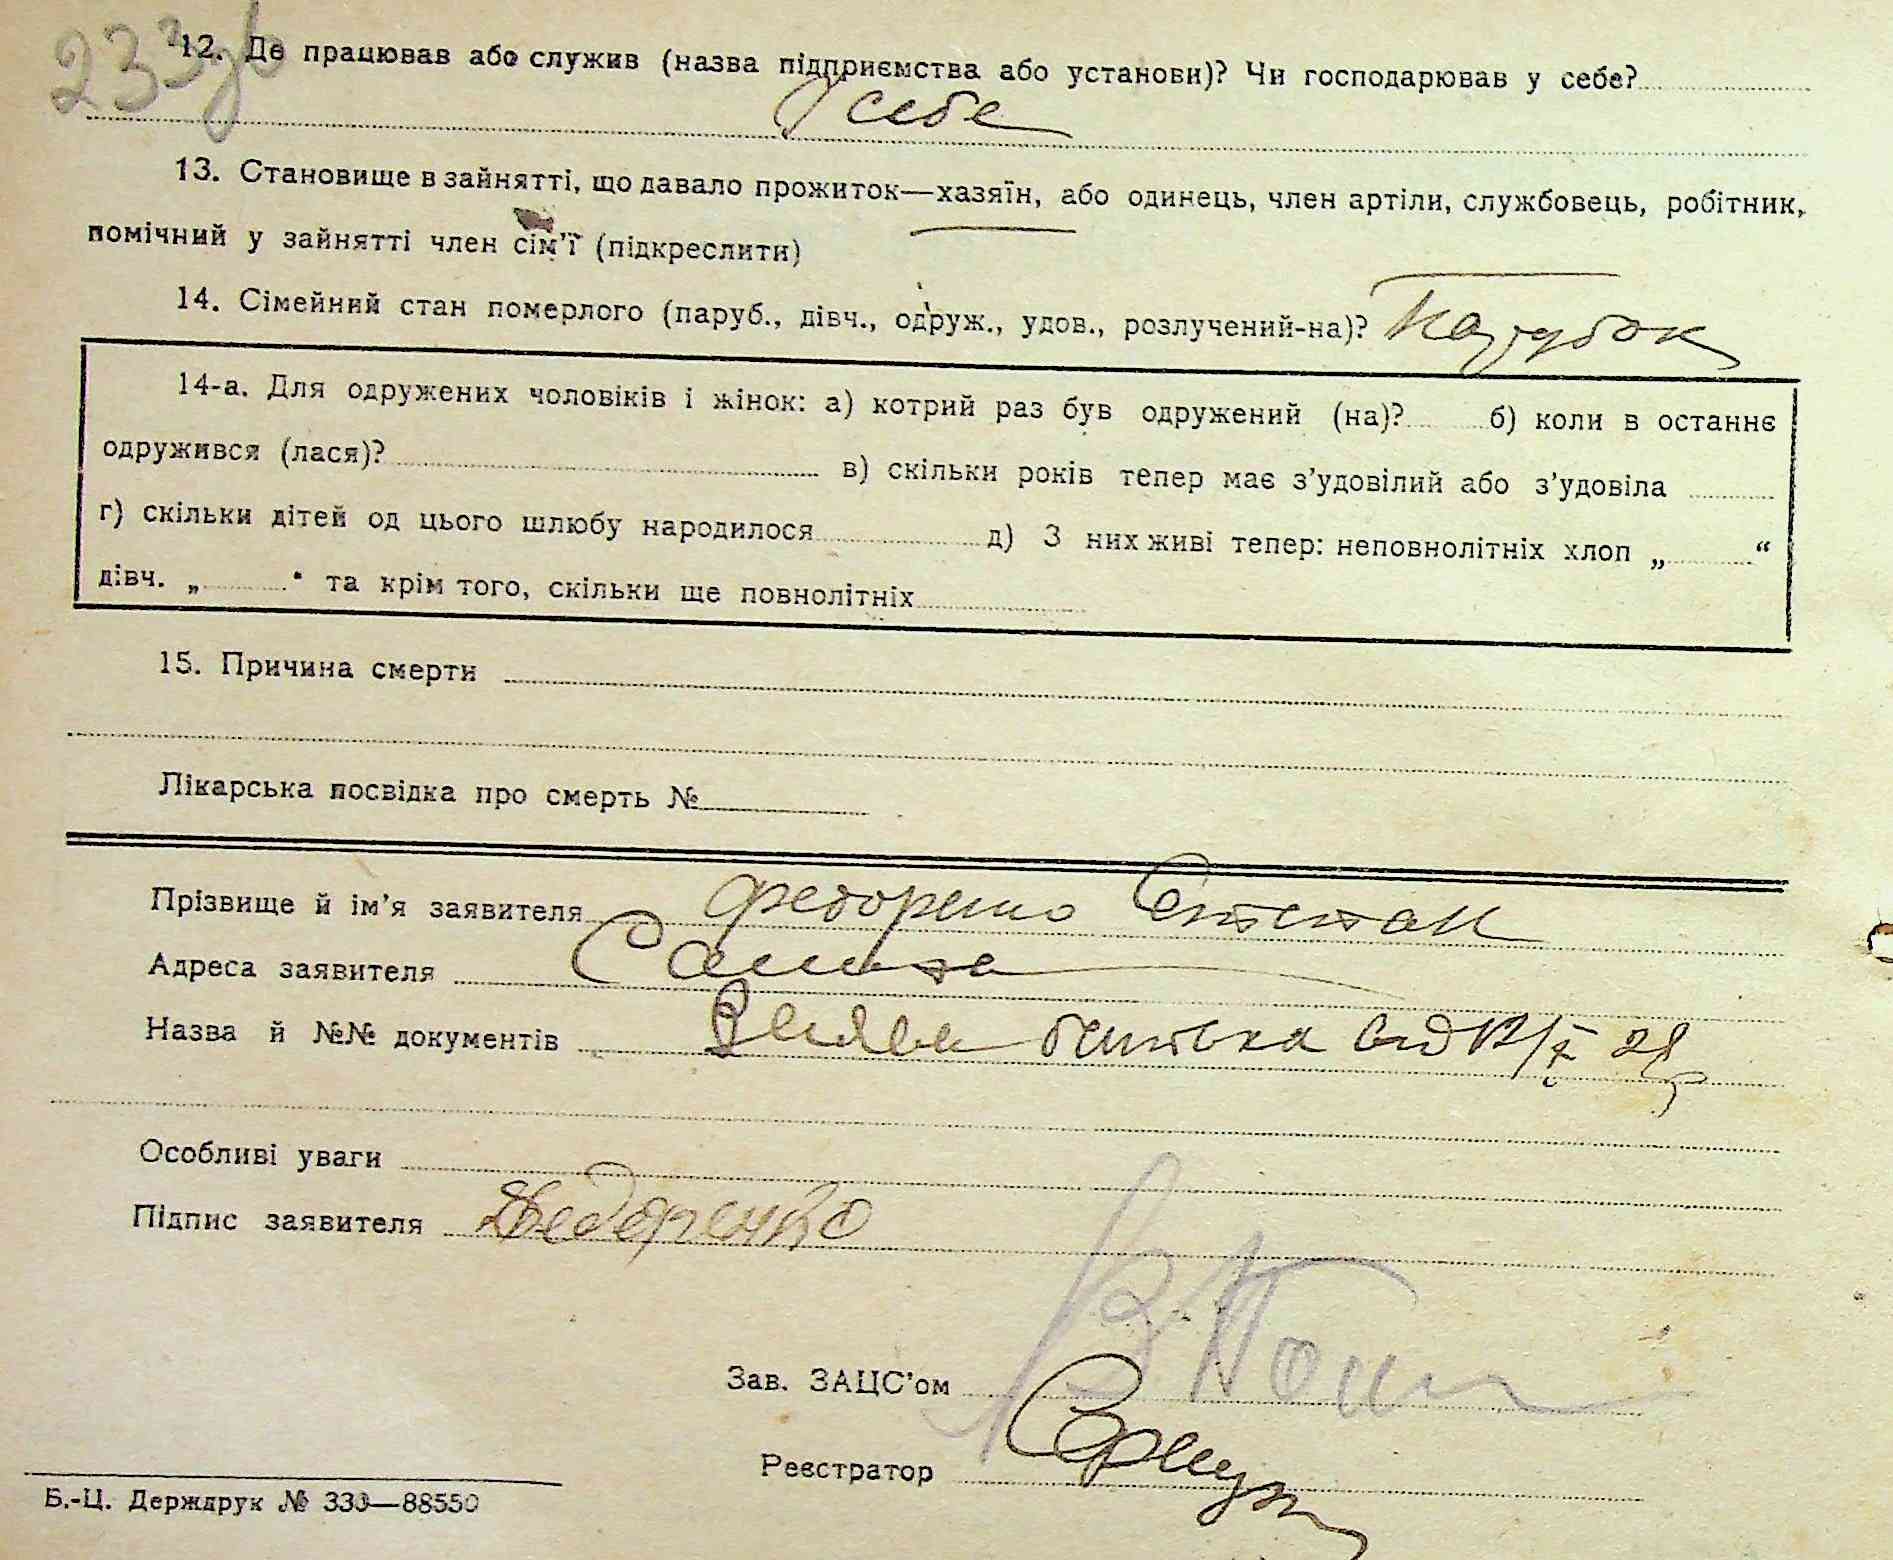 233 зв
12. Де працював або служив (назва підприємства або установи)? Чи господарював у себе?
У себе
13. Становище в зайнятті, що давало прожиток—хазяїн, або одинець, член артіли, службовець, робітник,
помічний у зайнятті член сім'ї (підкреслити)
14. Сімейний стан померлого (паруб., дівч., одруж., удов., розлучений-на)? Парубок
14-а. Для одружених чоловіків і жінок: а) котрий раз був одружений (на)? б) коли в останнє
одружився (лася)? в) скільки років тепер має з'удовілий або з'удовіла
г) скільки дітей од цього шлюбу народилося д) З них живі тепер: неповнолітніх хлоп „ “
дівч. „ “ та крім того, скільки ще повнолітніх
15. Причина смерти
Лікарська посвідка про смерть №
Прізвище й ім'я заявителя Федоренко Степан
Адреса заявителя
Назва й №№ документів Заява батька від
Особливі уваги
Підпис заявителя Федоренко
Зав. ЗАЦС'ом
Реєстратор
Б.-Ц. Держдрук № 330—88550